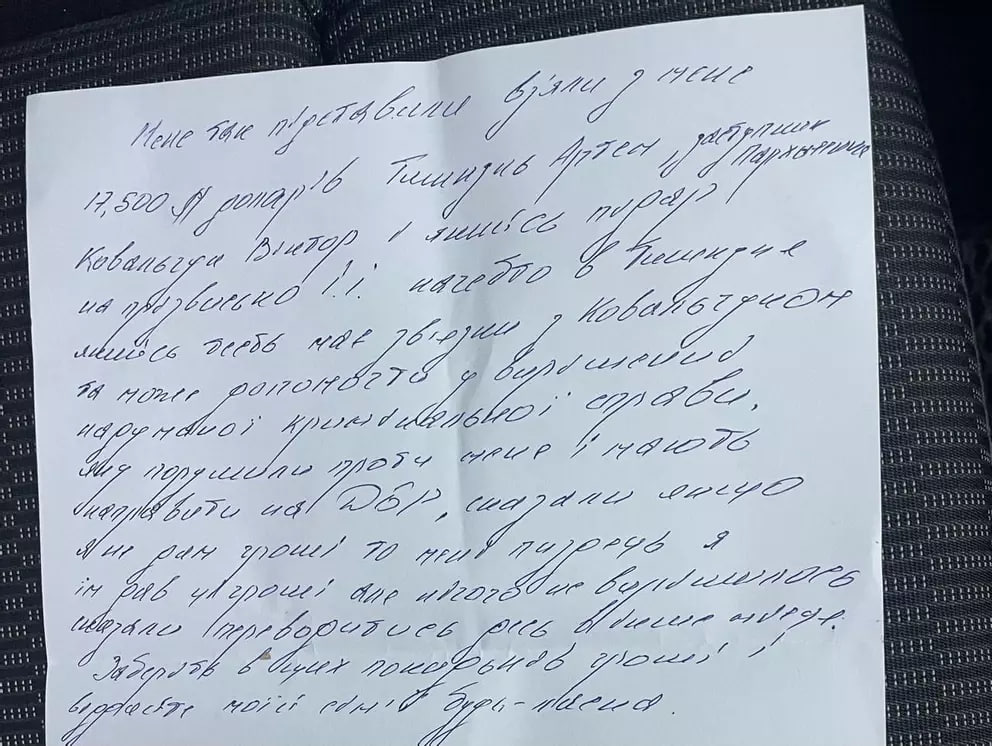 Мене так підставили взяли з мене
17,500 $ доларів Артем, заступник
Ковальчук Віктор і якийсь
на прізвисько І.І. начебто в
якийсь тесть має звязки з Ковальчуком
та може допомогти у вирішенні
надуманої кримінальної справи.
яку порушили проти мене і мають
направити на ДБР, сказали якщо
я не дам гроші то мені пиздець я
їм дав ці гроші але нічого не вирішилось
сказали переводитись десь в інше місце.
Заберіть в цих гроші і
віддайте моїй сімї будь-ласка.